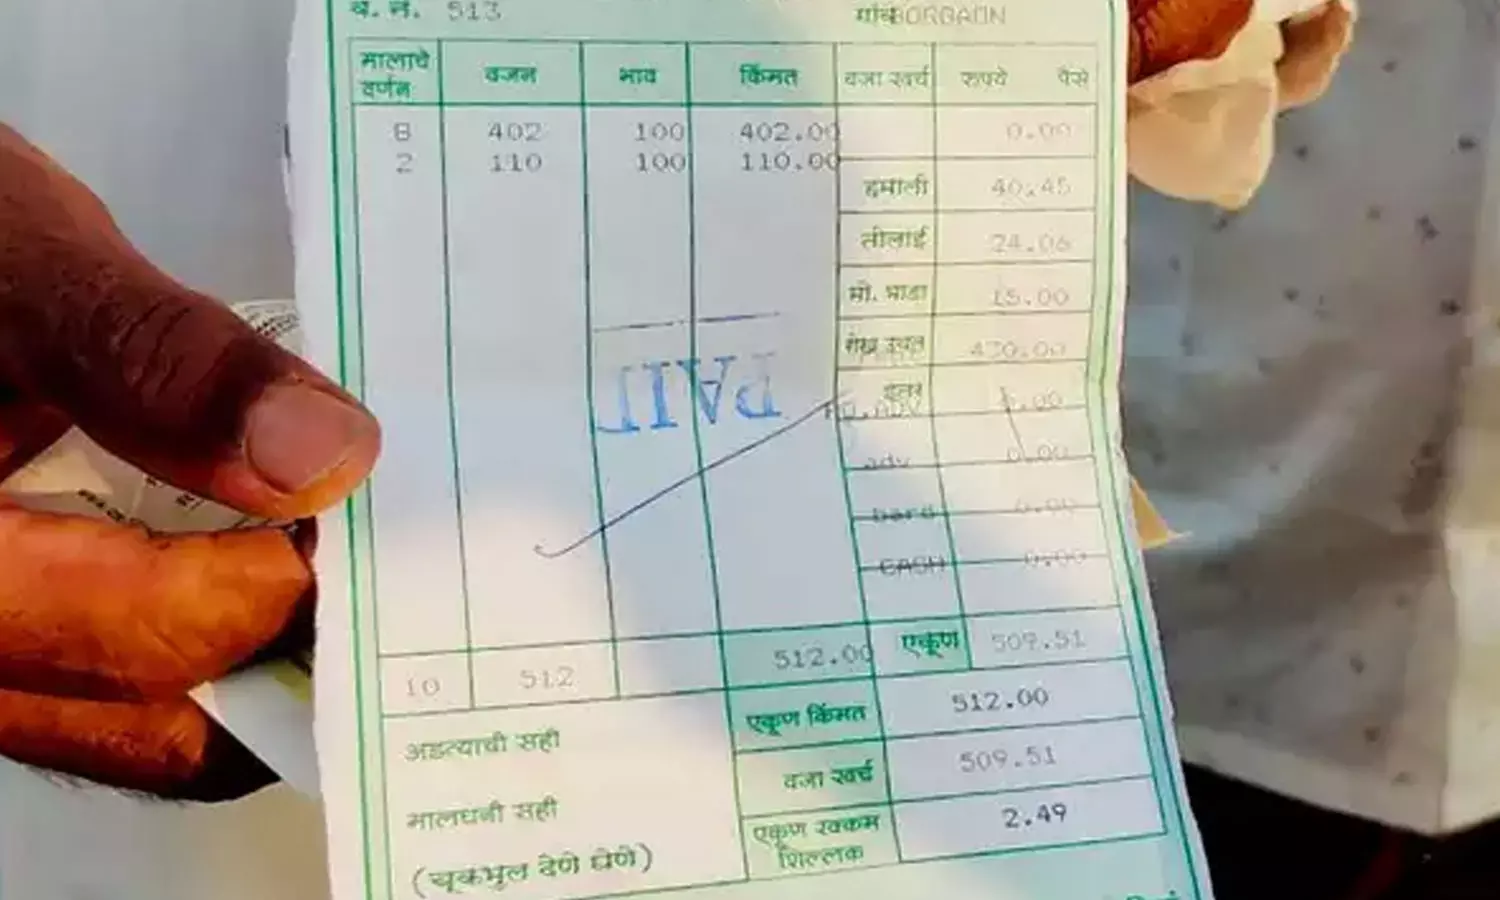 व. नं. 513 गांव BORGAON
मालाचे वर्णन वजन भाव किंमत वजा खर्च रुपये पैसे
8 402 100 402.00 0.00
2 110 100 110.00
हमाली 40.45
तोलाई 24.06
मो. भाडा 15.00
रोख उचल 430.00
इतर 0.00
adv 0.00
bard 0.00
CASH 0.00
PAID
10 512 512.00 एकूण 509.51
एकूण किंमत 512.00
अडत्याची सही
वजा खर्च 509.51
मालधनी सही
एकूण रक्कम शिल्लक 2.49
(चूकभुल देणे घेणे)